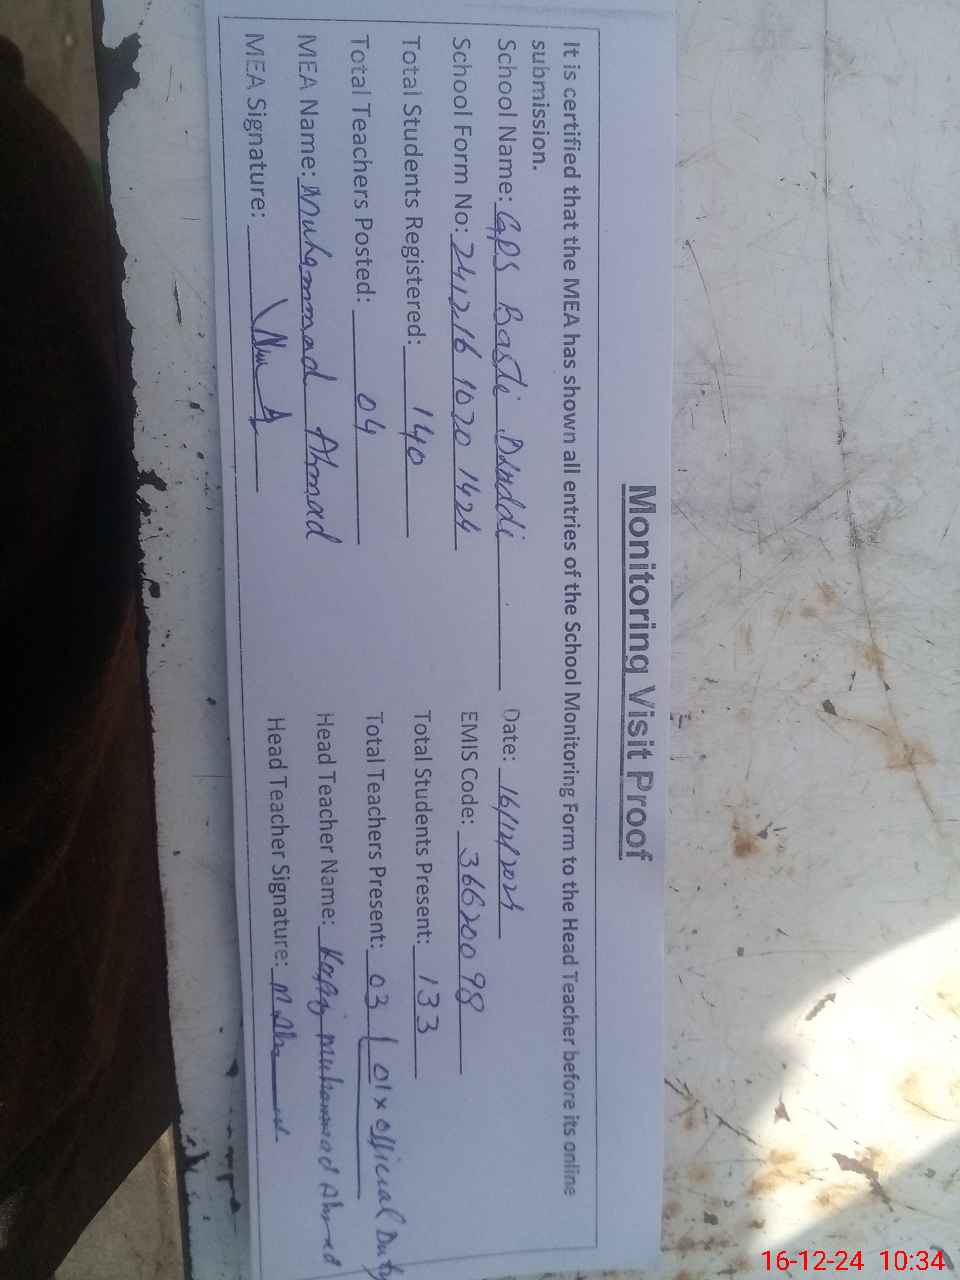 Monitoring Visit Proof
It is certified that the MEA has shown all entries of the School Monitoring Form to the Head Teacher before its online
submission.
School Name: GPS Basti Daddi Date: 16/12/2024
School Form No: 241216 1030 1424 EMIS Code: 36620098
Total Students Registered: 140 Total Students Present: 133
Total Teachers Posted: 04 Total Teachers Present: 03 | 01 x official Duty
MEA Name: Muhammad Ahmad Head Teacher Name: Muhammad Ahmed
MEA Signature: Head Teacher Signature:
16-12-24 10:34